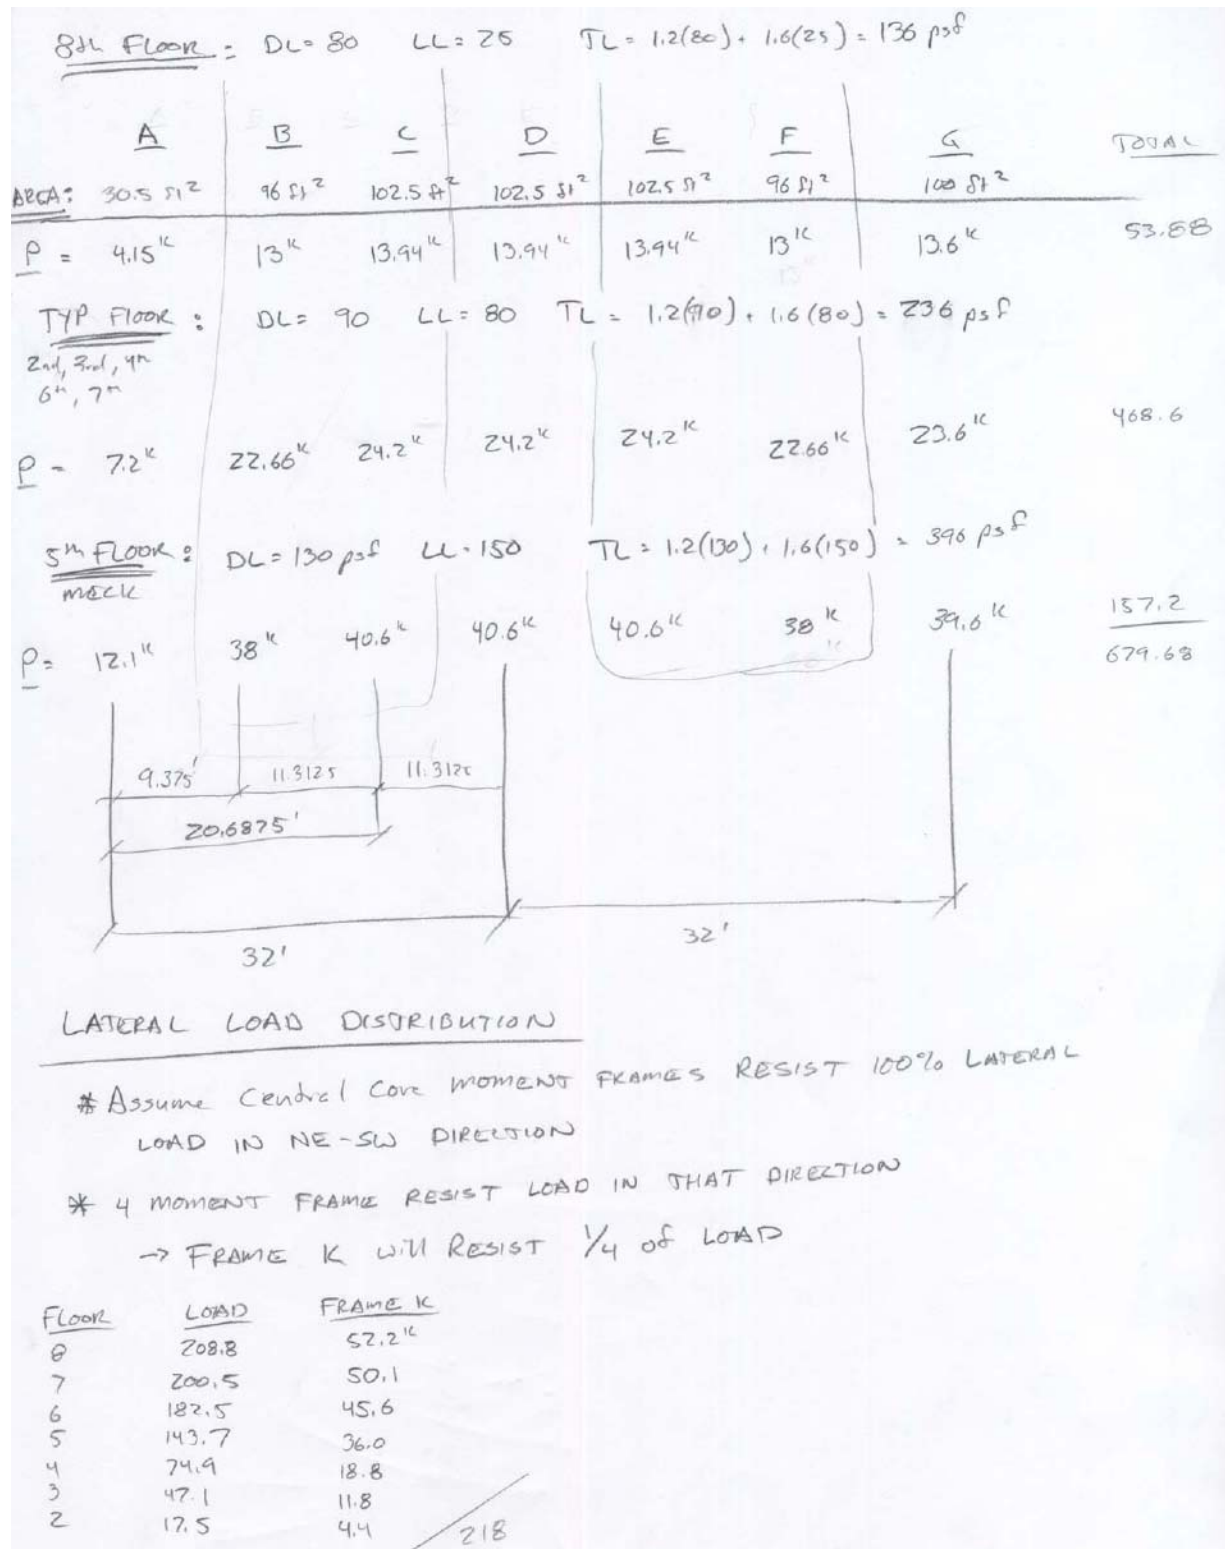 8th FLOOR: DL= 80 LL= 25 TL= 1.2(80) + 1.6(25) = 136 psf
A B C D E F G TOTAL
AREA: 30.5 ft² 96 ft² 102.5 ft² 102.5 ft² 102.5 ft² 96 ft² 100 ft²
P = 4.15ᵏ 13ᵏ 13.94ᵏ 13.94ᵏ 13.94ᵏ 13ᵏ 13.6ᵏ 53.88
TYP FLOOR: DL= 90 LL= 80 TL = 1.2(90) + 1.6(80) = 236 psf
2nd, 3rd, 4th
6th, 7th
P = 7.2ᵏ 22.66ᵏ 24.2ᵏ 24.2ᵏ 24.2ᵏ 22.66ᵏ 23.6ᵏ 468.6
5th FLOOR: DL= 130 psf LL= 150 TL = 1.2(130) + 1.6(150) = 396 psf
MECH
P= 12.1ᵏ 38ᵏ 40.6ᵏ 40.6ᵏ 40.6ᵏ 38ᵏ 39.6ᵏ 157.2
679.68
9.375' 11.3125 11.3125
20.6875'
32' 32'
LATERAL LOAD DISTRIBUTION
* Assume Central Core MOMENT FRAMES RESIST 100% LATERAL
LOAD IN NE-SW DIRECTION
* 4 MOMENT FRAME RESIST LOAD IN THAT DIRECTION
→ FRAME K will RESIST 1/4 of LOAD
FLOOR LOAD FRAME K
8 208.8 52.2ᵏ
7 200.5 50.1
6 182.5 45.6
5 143.7 36.0
4 74.9 18.8
3 47.1 11.8
2 17.5 4.4 218